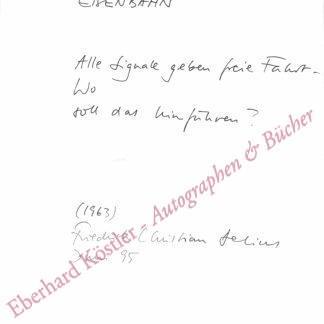 EISENBAHN
Alle Signale geben freie Fahrt -
Wo
soll das hinführen?
(1963)
Friedrich Christian Delius
95
Eberhard Köstler - Autographen & Bücher